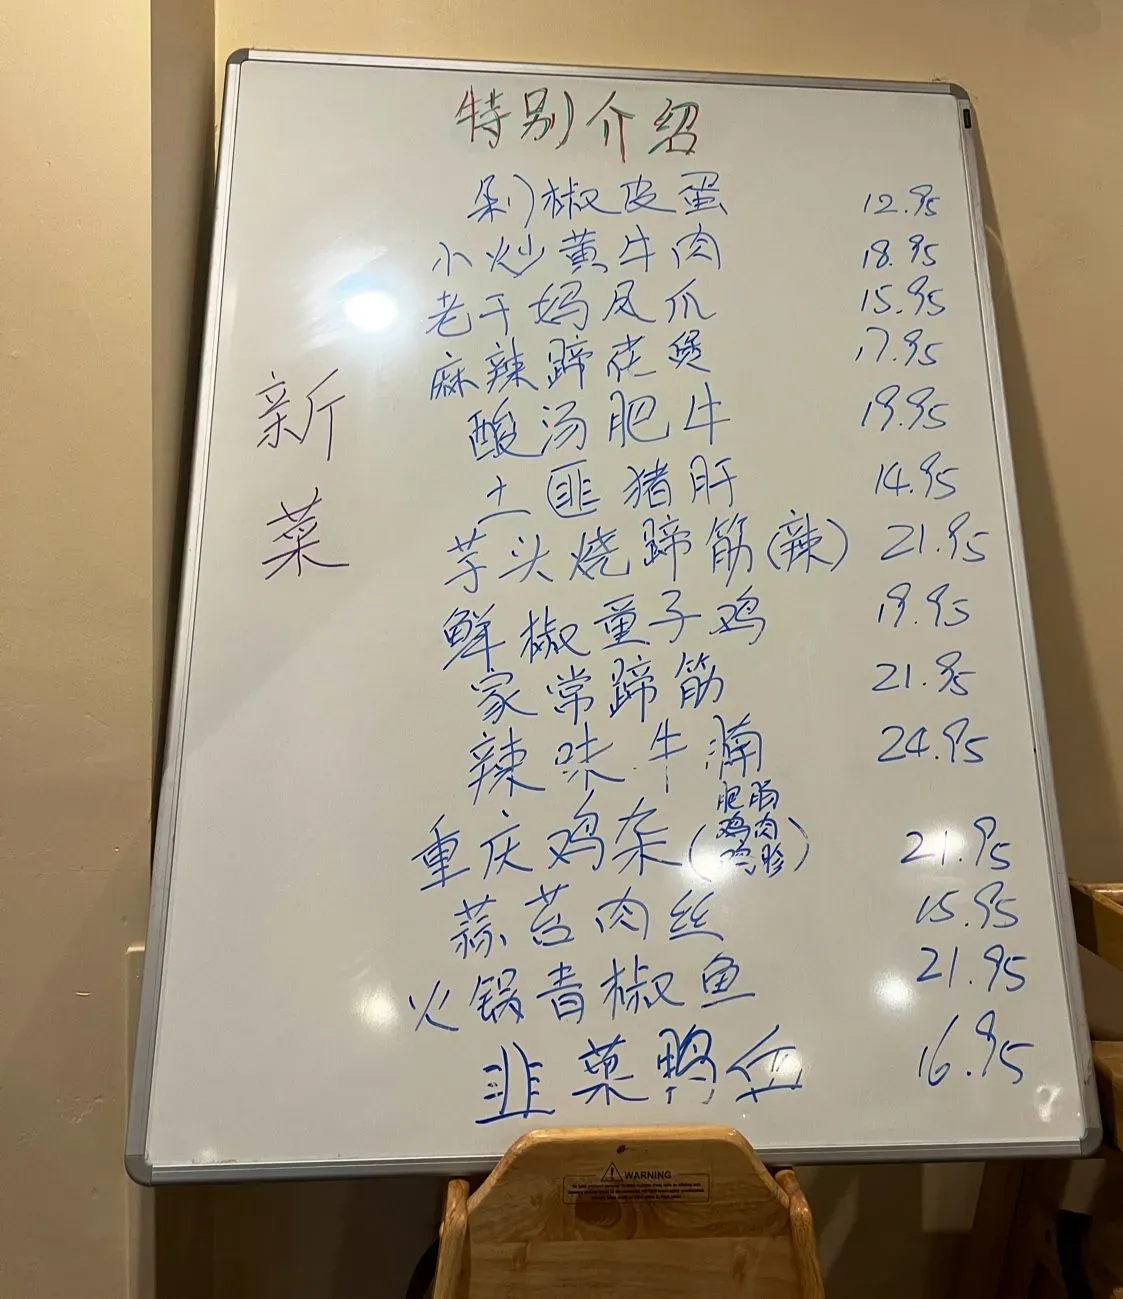 特别介绍
新菜
剁椒皮蛋 12.95
小炒黄牛肉 18.95
老干妈凤爪 15.95
麻辣蹄花煲 17.95
酸汤肥牛 19.95
土匪猪肝 14.95
芋头烧蹄筋(辣) 21.95
鲜椒童子鸡 19.95
家常蹄筋 21.95
辣味牛腩 24.95
重庆鸡杂(肥肠鸡肉鸡胗) 21.95
蒜苔肉丝 15.95
火锅青椒鱼 21.95
韭菜鸭血 16.95
WARNING